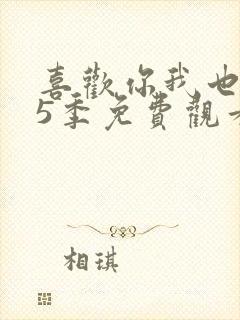 喜歡你我也
5季免費觀
相琪